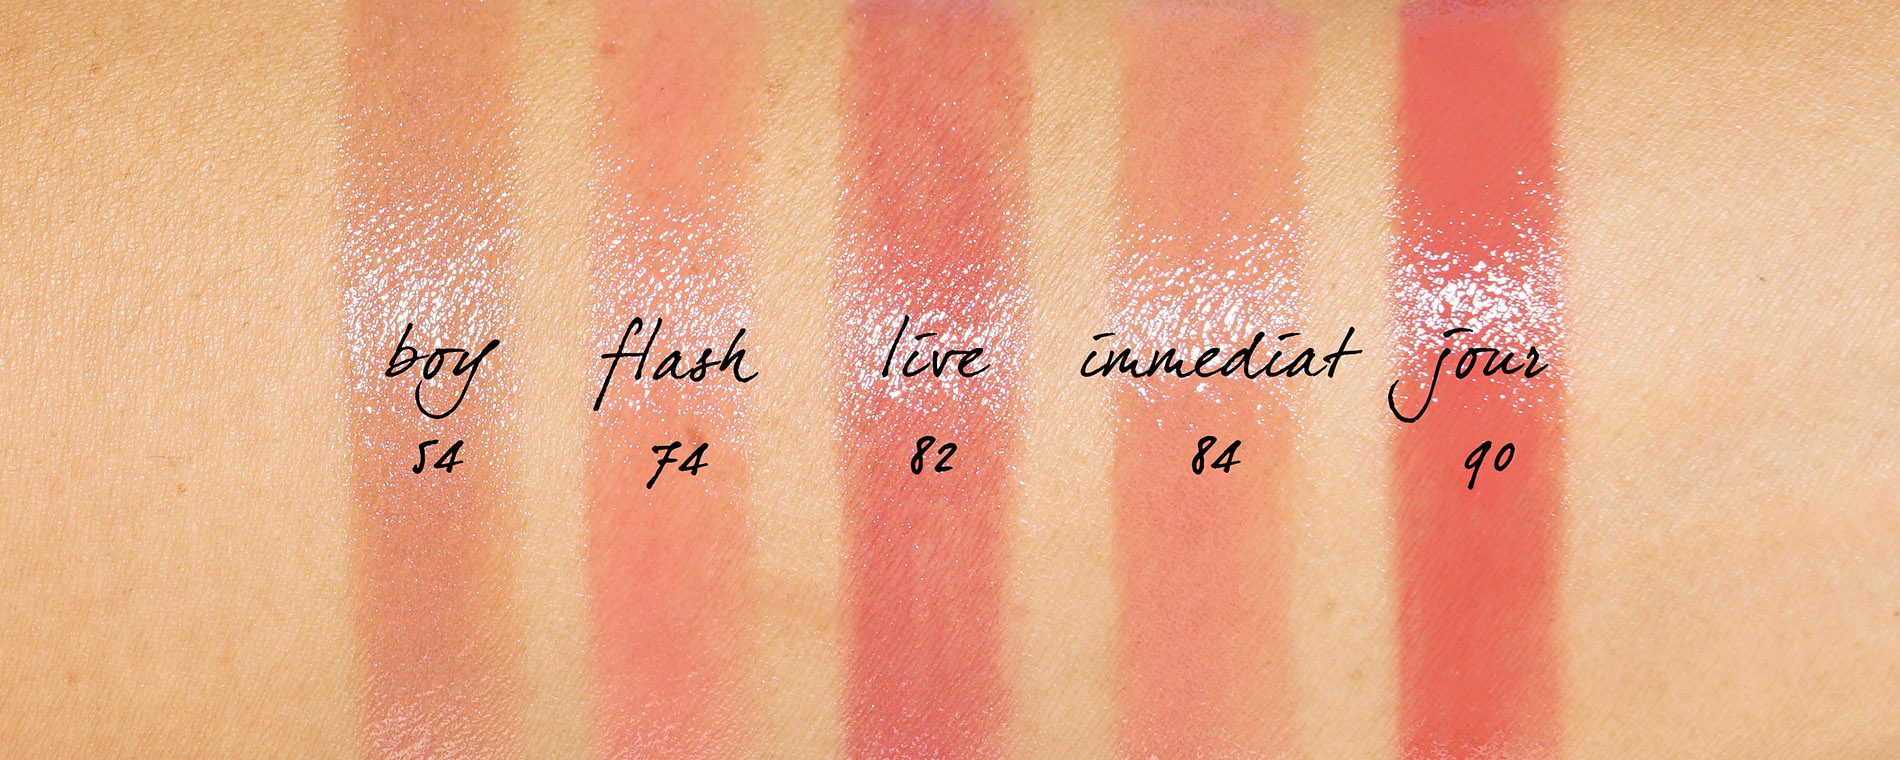 boy flash live immediat jour
54 74 82 84 90